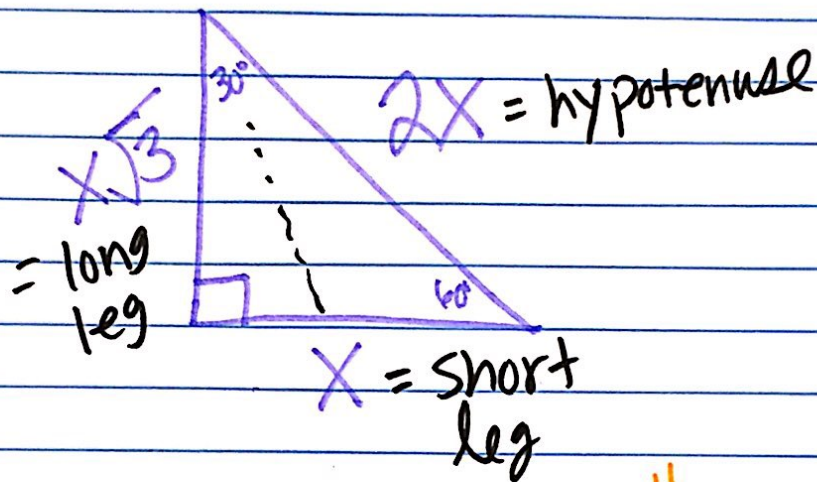 30°
2X = hypotenuse
X√3
= long
leg
60°
X = short
leg